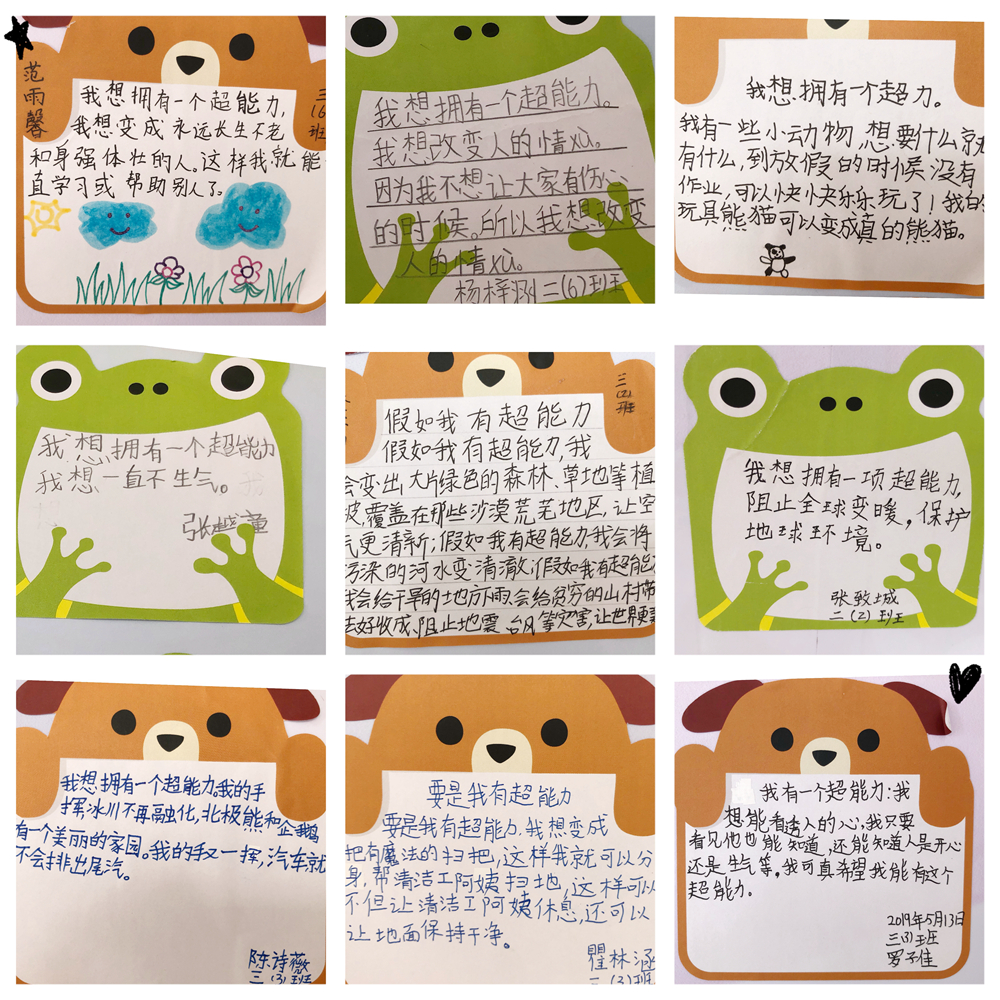 范雨馨
三(6)班
我想拥有一个超能力,
我想变成永远长生不老
和身强体壮的人。这样我就能一
直学习或帮助别人了。
我想拥有一个超能力。
我想改变人的情xù。
因为我不想让大家有伤心
的时候。所以我想改变
人的情xù。
杨梓涵 二(6)班
我想拥有一个超力。
我有一些小动物,想要什么就
有什么,到放假的时候没有
作业,可以快快乐乐玩了!我的
玩具熊猫可以变成真的熊猫。
我想拥有一个超能力
我想一直不生气。
张童
三(2)班
假如我有超能力
假如我有超能力,我
会变出大片绿色的森林、草地等植
被,覆盖在那些沙漠荒芜地区,让空
气更清新;假如我有超能力,我会将
污染的河水变清澈;假如我有超能
我会给干旱的地方下雨、会给贫穷的山村带
去好收成、阻止地震、台风等灾害,让世界更
我想拥有一项超能力,
阻止全球变暖,保护
地球环境。
张致城
二(2)班
我想拥有一个超能力。我的手一
挥冰川不再融化,北极熊和企鹅
有一个美丽的家园。我的手又一挥,汽车就
不会排出尾汽。
陈诗薇
三(3)班
要是我有超能力
要是我有超能力,我想变成
把有魔法的扫把,这样我就可以分
身,帮清洁工阿姨扫地,这样可以
不但让清洁工阿姨休息,还可以
让地面保持干净。
瞿林涵
二(3)班
我有一个超能力:我
想能看透人的心,我只要
看见他也能知道,还能知道人是开心
还是生气等。我可真希望我能有这个
超能力。
2019年5月13日
三(3)班
罗子佳